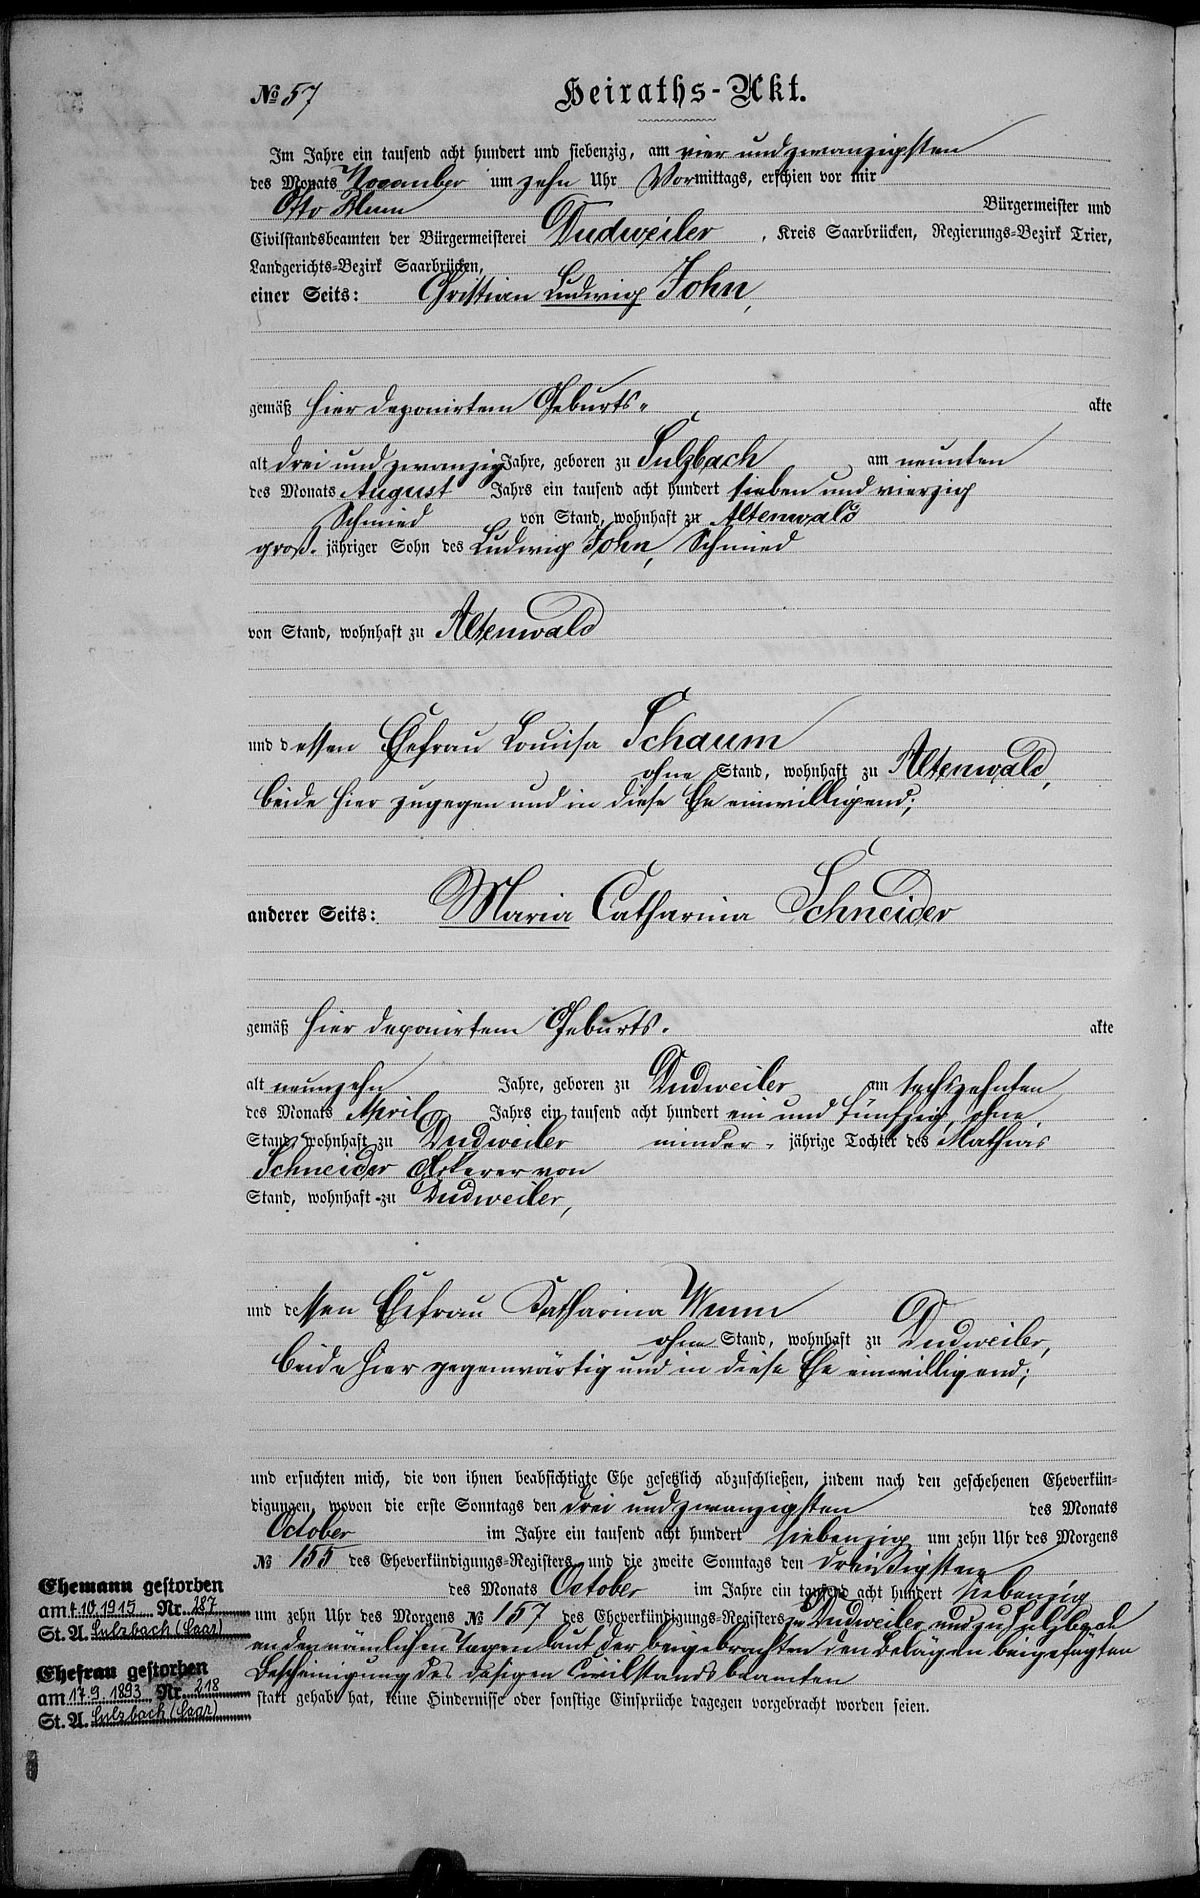 № 57 Heiraths-Akt.
Im Jahre ein tausend acht hundert und siebenzig, am vier und zwanzigsten
des Monats November um zehn Uhr Vormittags, erschien vor mir
Otto Blum Bürgermeister und
Civilstandsbeamten der Bürgermeisterei Dudweiler, Kreis Saarbrücken, Regierungs-Bezirk Trier,
Landgerichts-Bezirk Saarbrücken,
einer Seits: Christian Ludwig John,
gemäß hier deponirtem Geburts- akte
alt drei und zwanzig Jahre, geboren zu Sulzbach am neunten
des Monats August Jahrs ein tausend acht hundert sieben und vierzig
Schmied von Stand, wohnhaft zu Altenwald
groß- jähriger Sohn des Ludwig John, Schmied
von Stand, wohnhaft zu Altenwald
und dessen Ehefrau Louisa Schaum
ohne Stand, wohnhaft zu Altenwald,
beide hier zugegen und in diese Ehe einwilligend;
anderer Seits: Maria Catharina Schneider
gemäß hier deponirtem Geburts- akte
alt neunzehn Jahre, geboren zu Dudweiler am sechszehnten
des Monats April Jahrs ein tausend acht hundert ein und fünfzig, ohne
Stand, wohnhaft zu Dudweiler minder- jährige Tochter des Mathias
Schneider Ackerer von
Stand, wohnhaft zu Dudweiler,
und dessen Ehefrau Katharina
ohne Stand, wohnhaft zu Dudweiler,
beide hier gegenwärtig und in diese Ehe einwilligend;
und ersuchten mich, die von ihnen beabsichtigte Ehe gesetzlich abzuschließen, indem nach den geschehenen Eheverkün-
digungen, wovon die erste Sonntags den drei und zwanzigsten des Monats
October im Jahre ein tausend acht hundert siebenzig um zehn Uhr des Morgens
№ 155 des Eheverkündigungs-Registers und die zweite Sonntags den dreißigsten
des Monats October im Jahre ein tausend acht hundert siebenzig
um zehn Uhr des Morgens № 157 des Eheverkündigungs-Registers zu Dudweiler und zu Sulzbach
an den nämlichen Tagen laut der beigebrachten den Belägen beigefügten
Bescheinigung des dasigen Civilstandsbeamten
statt gehabt hat, keine Hindernisse oder sonstige Einsprüche dagegen vorgebracht worden seien.
Ehemann gestorben
am 1.10.1915 Nr. 287
St. A. Sulzbach (Saar)
Ehefrau gestorben
am 17.9.1893 Nr. 218
St. A. Sulzbach (Saar)